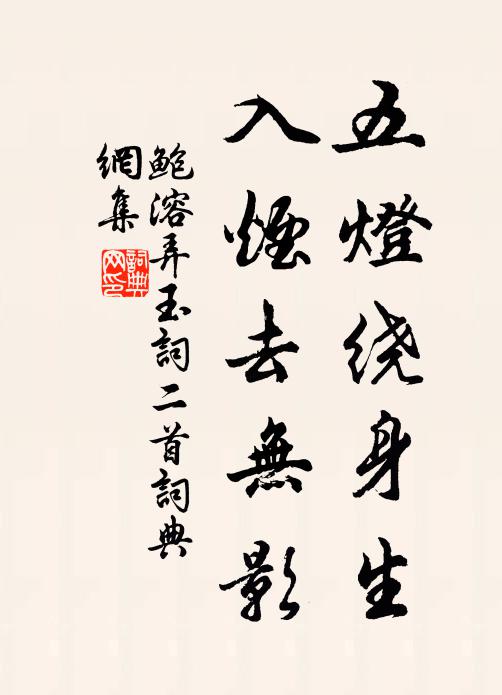 五燈绕身生
入煙去無影
鮑溶弄玉詞二首詞典
網集
詞典网印